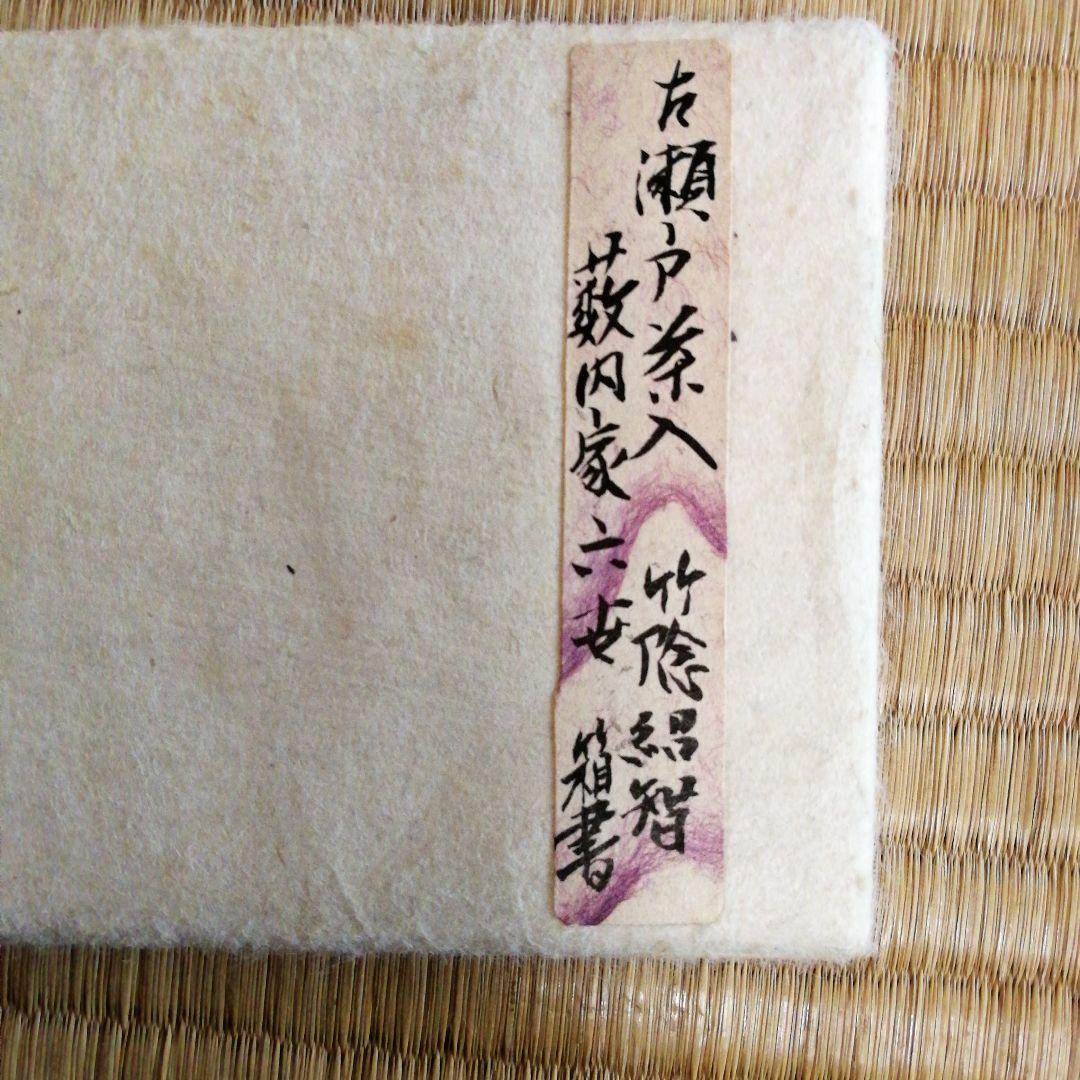 古瀬戸茶入 竹陰紹智
薮内家六世 箱書